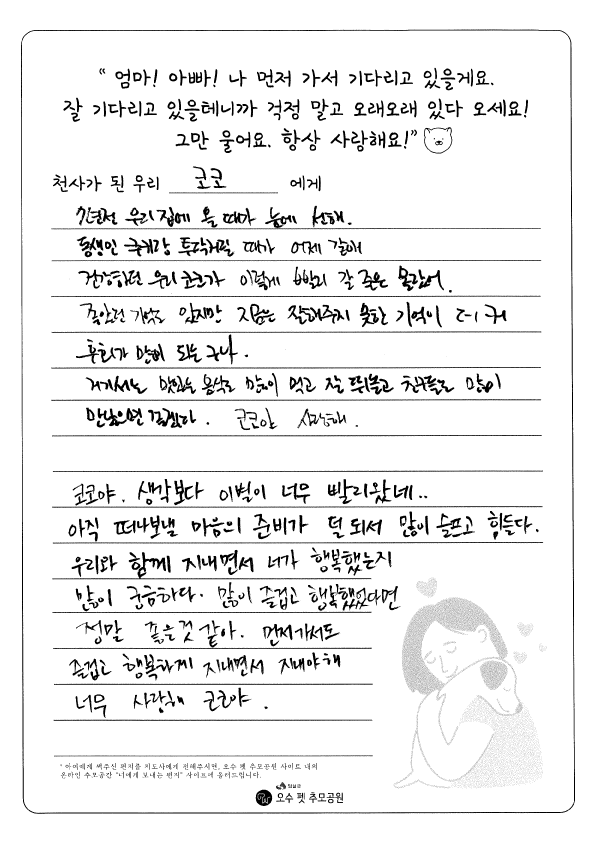 “ 엄마! 아빠! 나 먼저 가서 기다리고 있을게요.
잘 기다리고 있을테니까 걱정 말고 오래오래 있다 오세요!
그만 울어요. 항상 사랑해요!”
천사가 된 우리 코코 에게
우리집에 올 때가 눈에 선해.
동생인 투닥거릴 때가 어제 같애
건강하던 우리 코코가 이렇게 빨리 갈 줄은 몰랐어.
좋았던 기억도 있지만 지금은 잘해주지 못한 기억이 더 커
후회가 많이 되는구나.
거기서는 맛있는 음식도 많이 먹고 잘 뛰놀고 친구들도 많이
만났으면 좋겠다. 코코야 사랑해.
코코야. 생각보다 이별이 너무 빨리왔네..
아직 떠나보낼 마음의 준비가 덜 되서 많이 슬프고 힘들다.
우리와 함께 지내면서 너가 행복했는지
많이 궁금하다. 많이 즐겁고 행복했었다면
정말 좋을것 같아. 먼저가서도
즐겁고 행복하게 지내면서 지내야해
너무 사랑해 코코야.
* 아이에게 써주신 편지를 지도사에게 전해주시면, 오수 펫 추모공원 사이트 내의
온라인 추모공간 "너에게 보내는 편지" 사이트에 올려드립니다.
오수 펫 추모공원